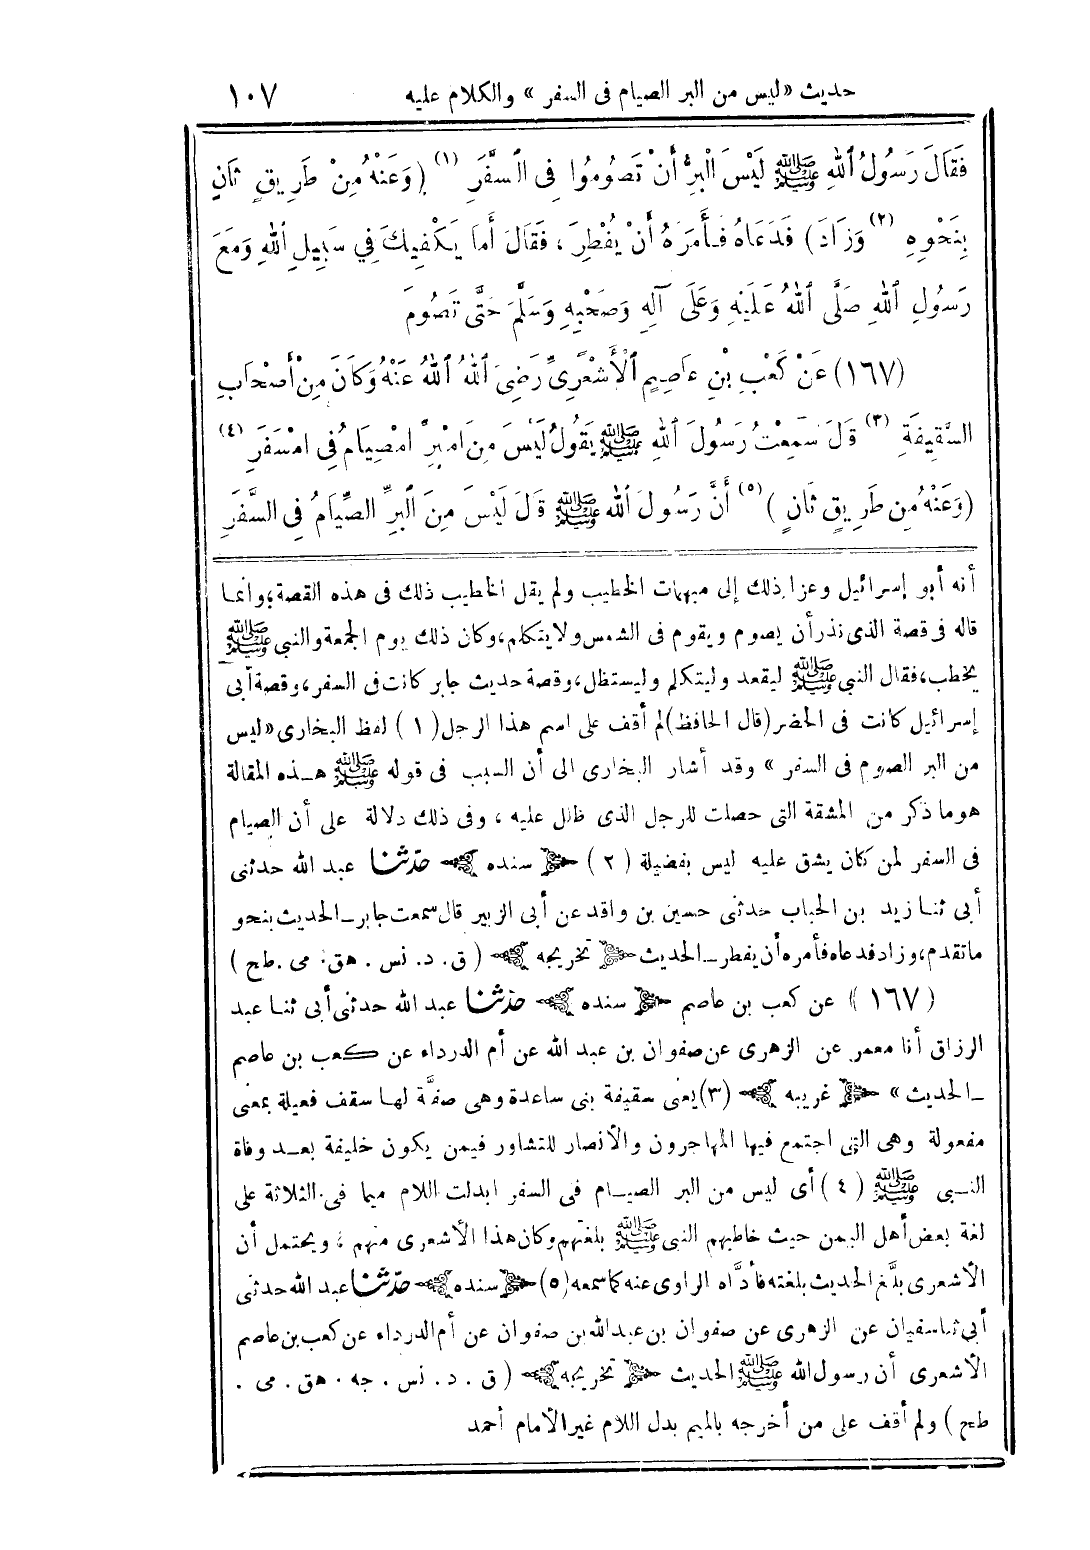 حديث «ليس من البر الصيام فى السفر» والكلام عليه ١٠٧
فَقَالَ رَسُولُ اللهِ ﷺ لَيْسَ الْبِرُّ أَنْ تَصُومُوا فِى السَّفَرِ (١) (وَعَنْهُ مِنْ طَرِيقٍ ثَانٍ
بِنَحْوِهِ (٢) وَزَادَ) فَدَعَاهُ فَأَمَرَهُ أَنْ يُفْطِرَ، فَقَالَ أَمَا يَكْفِيكَ فِي سَبِيلِ اللهِ وَمَعَ
رَسُولِ اللهِ صَلَّى اللهُ عَلَيْهِ وَعَلَى آلِهِ وَصَحْبِهِ وَسَلَّمَ حَتَّى تَصُومَ
(١٦٧) عَنْ كَعْبِ بْنِ عَاصِمٍ الْأَشْعَرِىِّ رَضِىَ اللهُ اللهُ عَنْهُ وَكَانَ مِنْ أَصْحَابِ
السَّقِيفَةِ (٣) قَالَ سَمِعْتُ رَسُولَ اللهِ ﷺ يَقُولُ لَيْسَ مِنَ امْبِرِّ امْصِيَامُ فِى امْسَفَرِ (٤)
(وَعَنْهُ مِن طَرِيقٍ ثَانٍ) (٥) أَنَّ رَسُولَ اللهِ ﷺ قَالَ لَيْسَ مِنَ الْبِرِّ الصِّيَامُ فِى السَّفَرِ
أنه أبو إسرائيل وعزا ذلك إلى مبهمات الخطيب ولم يقل الخطيب ذلك فى هذه القصة، وانما
قاله فى قصة الذى نذر أن يصوم ويقوم فى الشمس ولا يتكلم، وكان ذلك يوم الجمعة والنبى ﷺ
يخطب، فقال النبى ﷺ ليقعد وليتكلم وليستظل، وقصة حديث جابر كانت فى السفر، وقصة أبى
إسرائيل كانت فى الحضر (قال الحافظ) لم أقف على اسم هذا الرجل (١) لفظ البخارى «ليس
من البر الصوم فى السفر» وقد أشار البخارى الى أن السبب فى قوله ﷺ هـذه المقالة
هو ما ذكر من المشقة التى حصلت للرجل الذى ظلل عليه، وفى ذلك دلالة على أن الصيام
فى السفر لمن كان يشق عليه ليس بفضيلة (٢) سنده حدّثنا عبد الله حدثنى
أبى ثنا زيد بن الحباب حدثنى حسين بن واقد عن أبى الزبير قال سمعت جابر ـ الحديث بنحو
ماتقدم، وزاد فدعاه فأمره أن يفطر ـ الحديث تخريجه (ق. د. نس. هق. مى. طح)
(١٦٧) عن كعب بن عاصم سنده حدّثنا عبد الله حدثنى أبى ثنا عبد
الرزاق أنا معمر عن الزهرى عن صفوان بن عبد الله عن أم الدرداء عن كعب بن عاصم
ـ الحديث» غريبه (٣) يعنى سقيفة بنى ساعدة وهى صفّة لها سقف فعيلة بمعنى
مفعولة وهى التى اجتمع فيها المهاجرون والأنصار للتشاور فيمن يكون خليفة بعـد وفاة
النـبى ﷺ (٤) أى ليس من البر الصيـام فى السفر ابدلت اللام ميما فى الثلاثة على
لغة بعض أهل اليمن حيث خاطبهم النبى ﷺ بلغتهم وكان هذا الأشعرى منهم، ويحتمل أن
الأشعرى بلَّغ الحديث بلغته فأدَّاه الراوى عنه كما سمعه (٥) سنده حدّثنا عبد الله حدثنى
أبى ثنا سفيان عن الزهرى عن صفوان بن عبد الله بن صفوان عن أم الدرداء عن كعب بن عاصم
الأشعرى أن رسول الله ﷺ الحديث تخريجه (ق. د. نس. جه. هق. مى.
طح) ولم أقف على من أخرجه بالميم بدل اللام غير الأمام أحمد